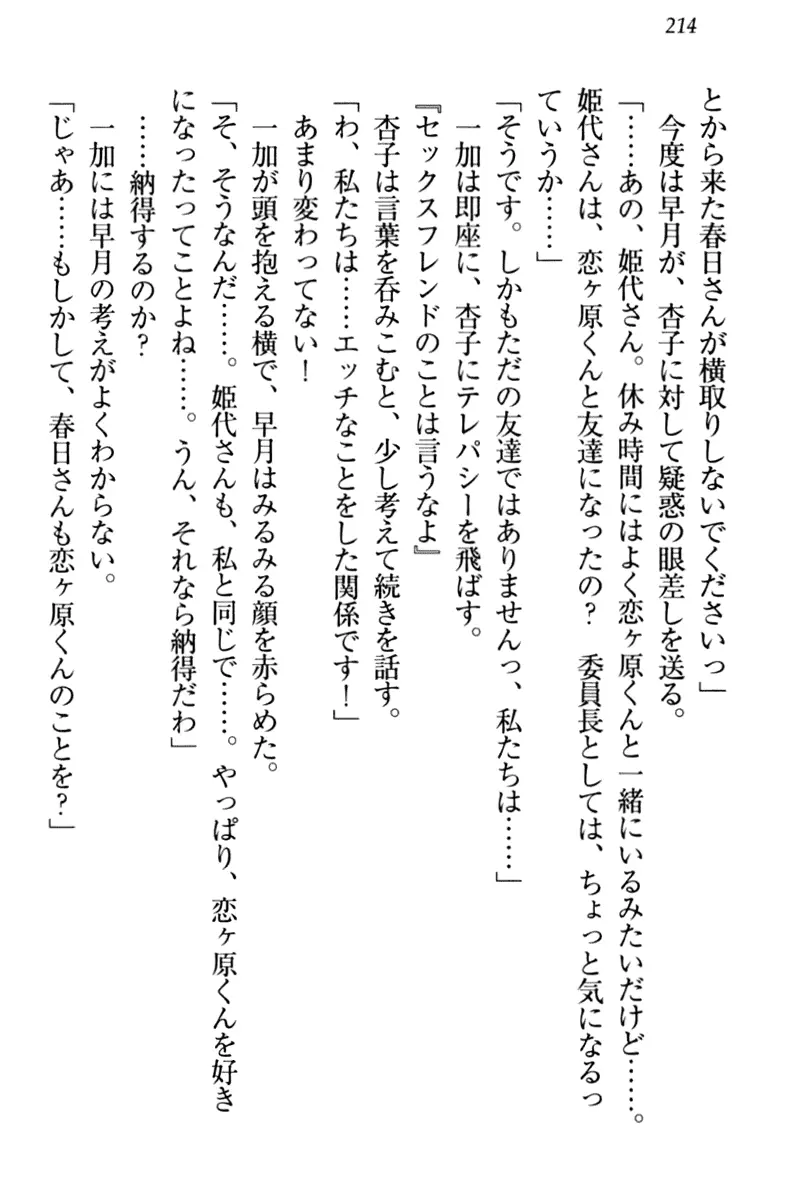 214
とから来た春日さんが横取りしないでくださいっ」
　今度は早月が、杏子に対して疑惑の眼差しを送る。
「……あの、姫代さん。休み時間にはよく恋ヶ原くんと一緒にいるみたいだけど……。
姫代さんは、恋ヶ原くんと友達になったの？　委員長としては、ちょっと気になるっ
ていうか……」
「そうです。しかもただの友達ではありませんっ、私たちは……」
　一加は即座に、杏子にテレパシーを飛ばす。
『セックスフレンドのことは言うなよ』
　杏子は言葉を呑みこむと、少し考えて続きを話す。
「わ、私たちは……エッチなことをした関係です！」
　あまり変わってない！
　一加が頭を抱える横で、早月はみるみる顔を赤らめた。
「そ、そうなんだ……。姫代さんも、私と同じで……。やっぱり、恋ヶ原くんを好き
になったってことよね……。うん、それなら納得だわ」
　……納得するのか？
　一加には早月の考えがよくわからない。
「じゃあ……もしかして、春日さんも恋ヶ原くんのことを？」